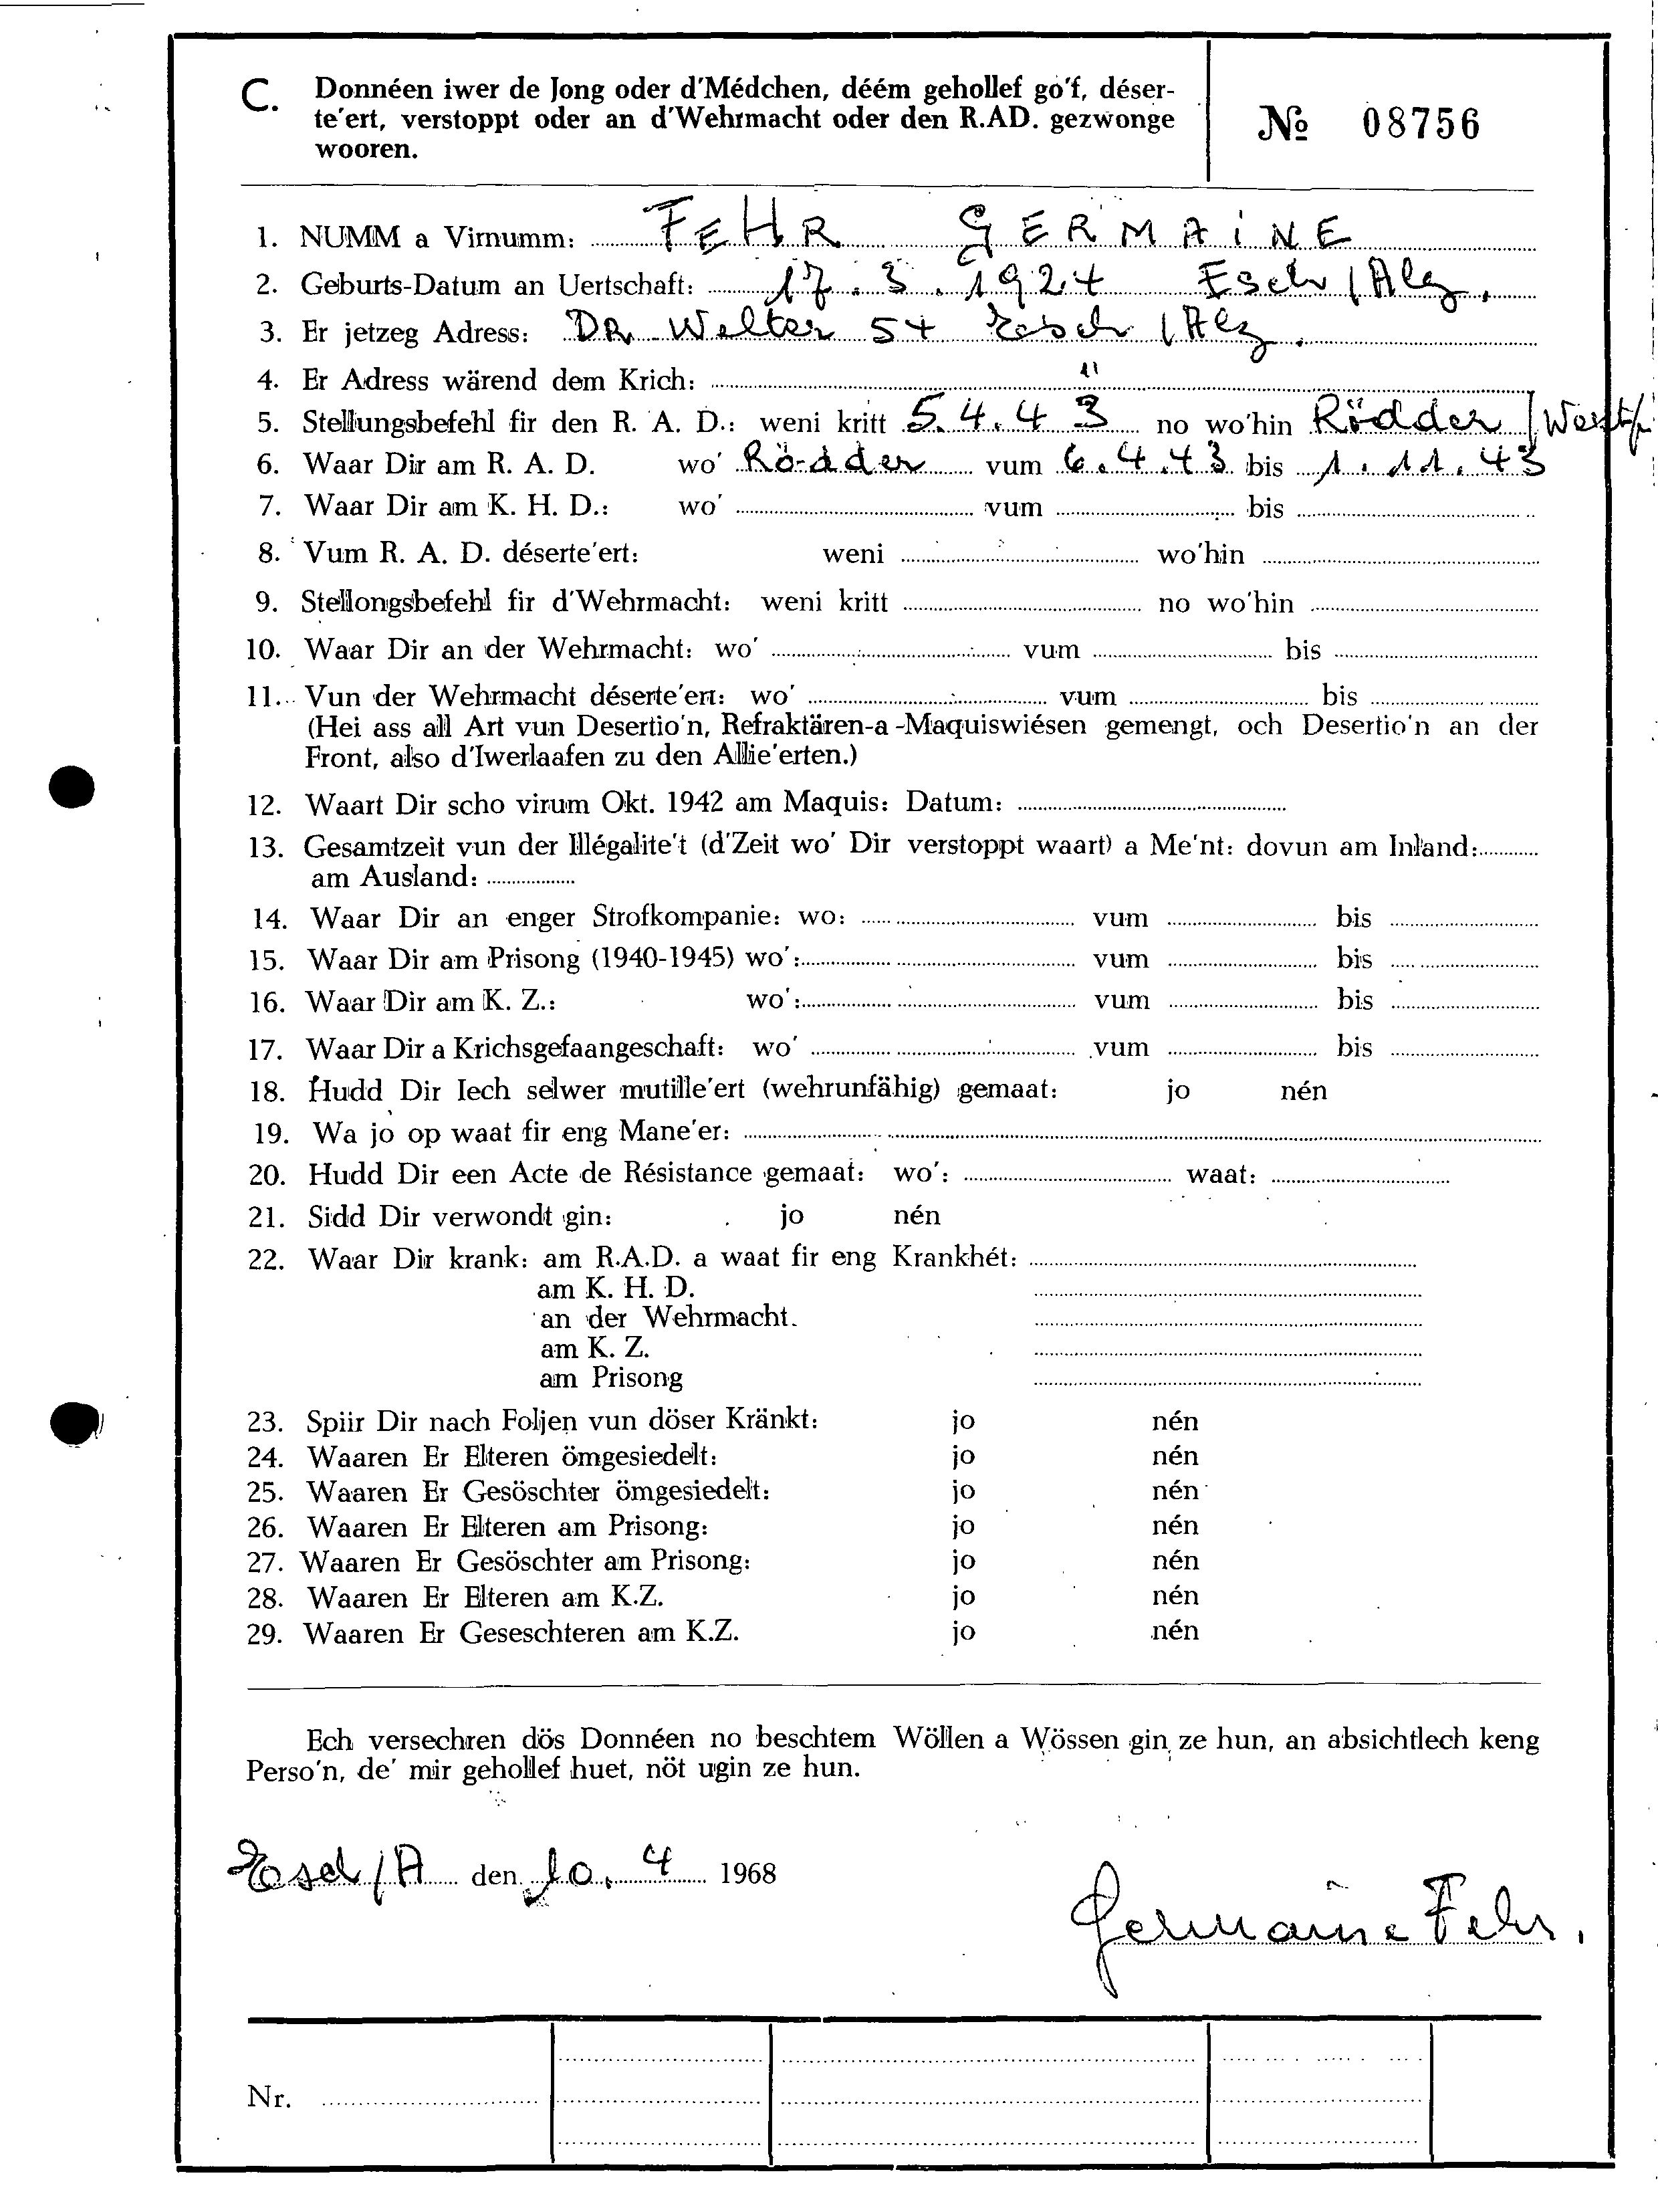 C. Donnéen iwer de Jong oder d'Médchen, déém gehollef go'f, déser-
te'ert, verstoppt oder an d'Wehrmacht oder den R.AD. gezwonge
wooren.
№ 08756
1. NUMM a Virnumm: FEHR GERMAINE
2. Geburts-Datum an Uertschaft: 17.3.1924 Esch/Alz.
3. Er jetzeg Adress: DR Welter 54 Esch/Alz.
4. Er Adress wärend dem Krich: "
5. Stellungsbefehl fir den R. A. D.: weni kritt 5.4.43 no wo'hin Rödder/Westf
6. Waar Dir am R. A. D. wo' Rödder vum 6.4.43 bis 1.11.43
7. Waar Dir am K. H. D.: wo' vum bis
8. Vum R. A. D. déserte'ert: weni wo'hin
9. Stellongsbefehl fir d'Wehrmacht: weni kritt no wo'hin
10. Waar Dir an der Wehrmacht: wo' vum bis
11. Vun der Wehrmacht déserte'ert: wo' vum bis
(Hei ass all Art vun Desertio'n, Refraktären-a-Maquiswiésen gemengt, och Desertio'n an der
Front, also d'Iwerlaafen zu den Allie'erten.)
12. Waart Dir scho virum Okt. 1942 am Maquis: Datum:
13. Gesamtzeit vun der Illégalite't (d'Zeit wo' Dir verstoppt waart) a Me'nt: dovun am Inland:
am Ausland:
14. Waar Dir an enger Strofkompanie: wo: vum bis
15. Waar Dir am Prisong (1940-1945) wo': vum bis
16. Waar Dir am K. Z.: wo': vum bis
17. Waar Dir a Krichsgefaangeschaft: wo' vum bis
18. Hudd Dir Iech selwer mutille'ert (wehrunfähig) gemaat: jo nén
19. Wa jo op waat fir eng Mane'er:
20. Hudd Dir een Acte de Résistance gemaat: wo': waat:
21. Sidd Dir verwondt gin: jo nén
22. Waar Dir krank: am R.A.D. a waat fir eng Krankhét:
am K. H. D.
an der Wehrmacht.
am K. Z.
am Prisong
23. Spiir Dir nach Foljen vun döser Kränkt: jo nén
24. Waaren Er Elteren ömgesiedelt: jo nén
25. Waaren Er Gesöschter ömgesiedelt: jo nén
26. Waaren Er Elteren am Prisong: jo nén
27. Waaren Er Gesöschter am Prisong: jo nén
28. Waaren Er Elteren am K.Z. jo nén
29. Waaren Er Geseschteren am K.Z. jo nén
Ech versechren dös Donnéen no beschtem Wöllen a Wössen gin ze hun, an absichtlech keng
Perso'n, de' mir gehollef huet, nöt ugin ze hun.
Esch/A den 10. 4 1968
Germaine Fehr.
Nr.